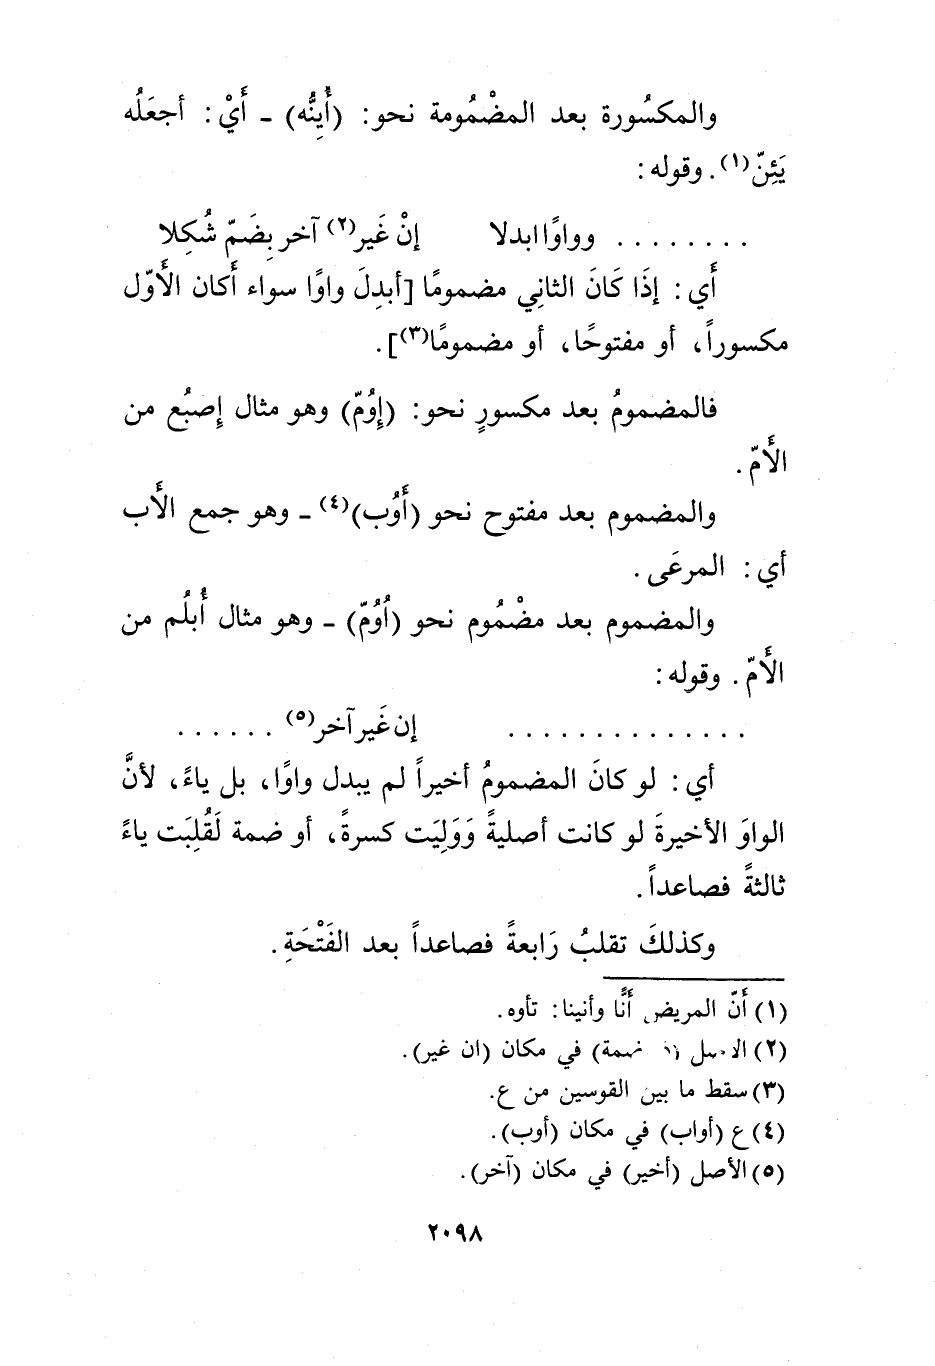 والمكسُورة بعد المضْمُومة نحو: (أُيِنُّه) ـ أَيْ: أجعَلُه
يَئِنّ(١). وقوله:
........ وواوًا ابدلا إنْ غَير(٢) آخر بِضَمّ شُكِلا
أَي: إذَا كَانَ الثانِي مضمومًا [أبدِلَ واوًا سواء أَكان الأَوّل
مكسوراً، أو مفتوحًا، أو مضمومًا(٣)].
فالمضمومُ بعد مكسورٍ نحو: (إوُمّ) وهو مثال إصبُع من
الأَمّ.
والمضموم بعد مفتوح نحو (أَوُب)(٤) ـ وهو جمع الأَب
أي: المرعَى.
والمضموم بعد مضْمُوم نحو (اُوُمّ) ـ وهو مثال أُبلُم من
الأَمّ. وقوله:
.............. إن غَير آخر(٥) ......
أي: لو كانَ المضمومُ أخيراً لم يبدل واوًا، بل ياءً، لأنَّ
الواوَ الأخيرةَ لو كانت أصليةً وَوَلِيَت كسرةً، أو ضمة لَقُلِبَت ياءً
ثالثةً فصاعداً.
وكذلكَ تقلبُ رَابعةً فصاعداً بعد الفَتْحَةِ.
(١) أَنّ المريض أَنًّا وأنينا: تأوه.
(٢) الاصل في مكان (ان غير).
(٣) سقط ما بين القوسين من ع.
(٤) ع (أواب) في مكان (أوب).
(٥) الأصل (أخير) في مكان (آخر).
٢٠٩٨